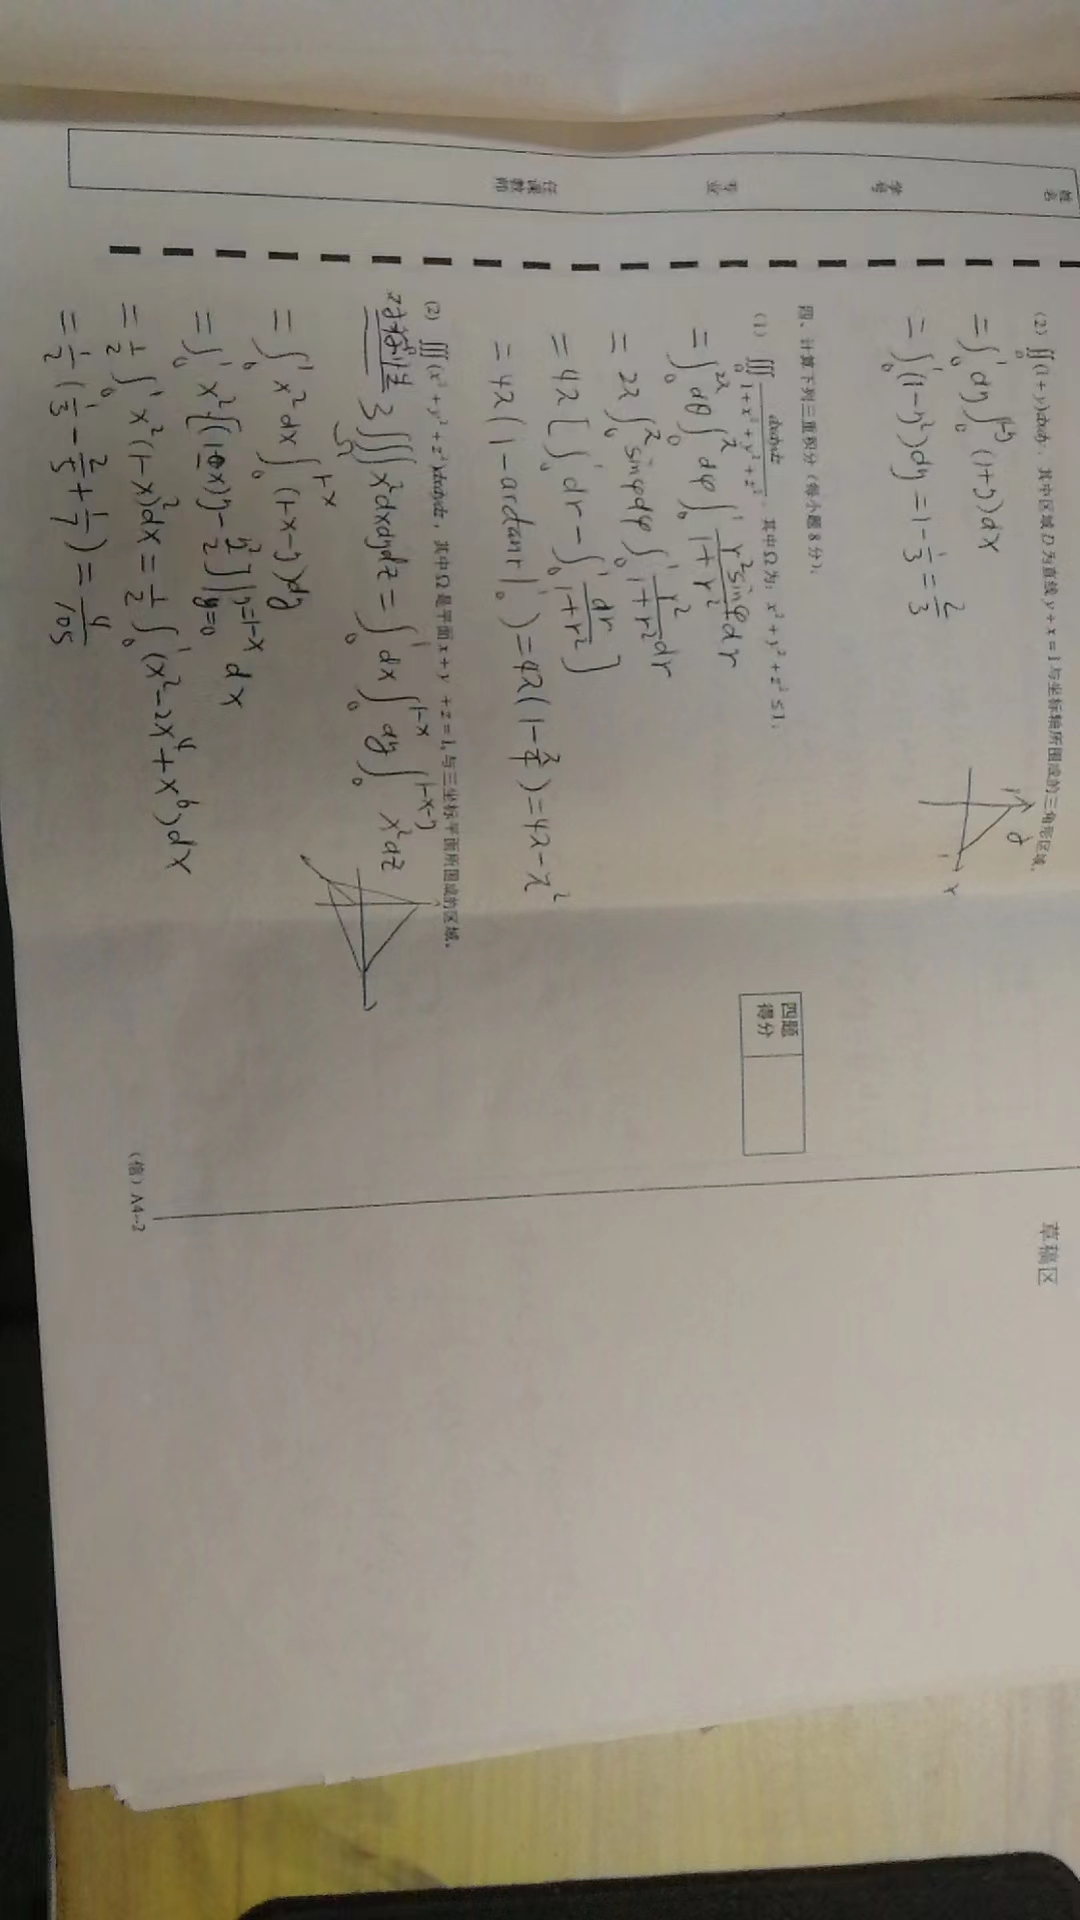 姓名
学号
专业
任课教师
(2) ∬_D (1+y)dxdy，其中区域 D 为直线 y+x=1 与坐标轴所围成的三角形区域。
1 y
x
1
=∫_0^1 dy ∫_0^{1-y} (1+y)dx
=∫_0^1 (1-y²)dy = 1-1/3 = 2/3
四、计算下列三重积分（每小题 8 分）：
四题
得分
(1) ∭_Ω dxdydz/(1+x²+y²+z²)，其中Ω为：x²+y²+z²≤1；
=∫_0^{2π} dθ ∫_0^π dφ ∫_0^1 r²sinφ/(1+r²) dr
= 2π ∫_0^π sinφdφ ∫_0^1 r²/(1+r²) dr
= 4π [∫_0^1 dr - ∫_0^1 dr/(1+r²)]
= 4π(1-arctanr|_0^1) = 4π(1-π/4) = 4π-π²
(2) ∭_Ω (x²+y²+z²)dxdydz，其中Ω是平面 x+y +z=1,与三坐标平面所围成的区域。
对称性 3∭_Ω x²dxdydz = ∫_0^1 dx ∫_0^{1-x} dy ∫_0^{1-x-y} x²dz
= ∫_0^1 x²dx ∫_0^{1-x} (1-x-y)dy
= ∫_0^1 x²[(1-x)y - y²/2]|_{y=0}^{y=1-x} dx
= 1/2 ∫_0^1 x²(1-x)²dx = 1/2 ∫_0^1 (x²-2x⁴+x⁶)dx
= 1/2 (1/3 - 2/5 + 1/7) = 4/105
草稿区
（信）A4-2